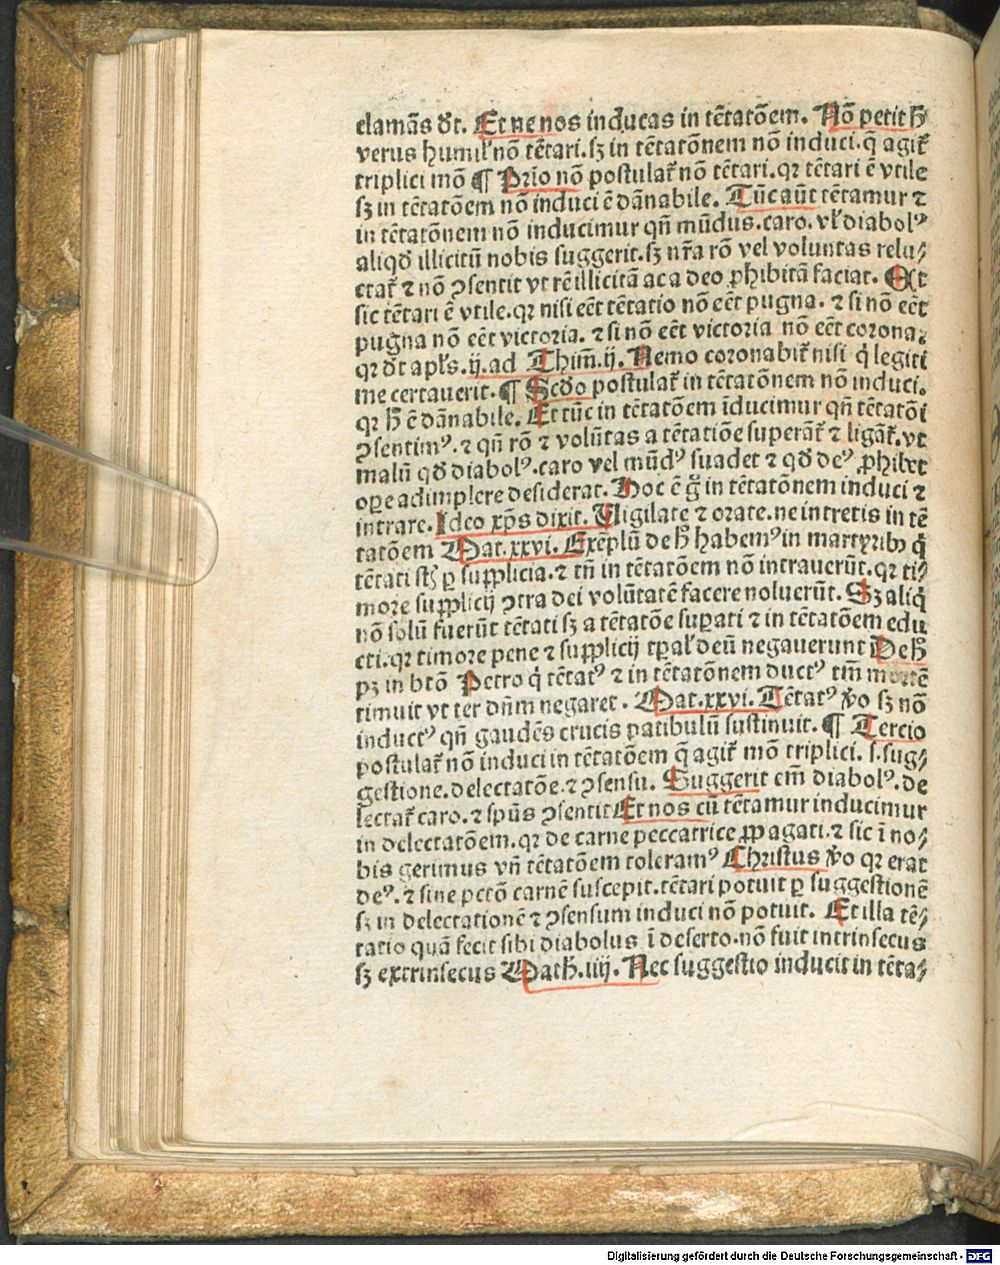 clamãs dt. Et ne nos inducas in tētatōem. Nō petit h̄
verus humil̕ nō tētari. sꝫ in tētatōnem nō induci. q̄ agit᷑
triplici mō ¶ Prīo nō postulat᷑ nō tētari. qꝛ tētari ē vtile
sꝫ in tētatōem nō induci ē dānabile. Tūc aūt tētamur ⁊
in tētatōnem nō inducimur qn̄ mūdus. caro. vl̕ diabolꝰ
aliqd̕ illicitū nobis suggerit. sꝫ nr̄a rō vel voluntas relu⸗
ctat᷑ ⁊ nō ↄsentit vt rē illicitā ac a deo ꝓhibitā faciat. Et
sic tētari ē vtile. qꝛ nisi eēt tētatio nō eēt pugna. ⁊ si nō eēt
pugna nō eēt victoria. ⁊ si nō eēt victoria nō eēt corona.
qꝛ dt apl̕s. ij. ad Thim̄. ij. Nemo coronabit᷑ nisi q̇ legiti
me certauerit. ¶ Scd̕o postulat᷑ in tētatōnem nō induci.
qꝛ h̄ ē dānabile. Et tūc in tētatōem īducimur qn̄ tētatōi
ↄsentimꝰ. ⁊ qn̄ rō ⁊ volūtas a tētatiōe superāt᷑ ⁊ ligāt᷑. vt
malū qd̕ diabolꝰ. caro vel mūdꝰ suadet ⁊ qd̕ deꝰ ꝓhibet
oꝑe adimplere desiderat. Hoc ē g̊ in tētatōnem induci ⁊
intrare. Ideo xp̄s dixit. Vigilate ⁊ orate. ne intretis in tē
tatōem Mat. xxvi. Exēplū de h̄ habemꝰ in martyribꝫ q̇
tētati st̄ ꝑ supplicia. ⁊ tn̄ in tētatōem nō intrauerūt. qꝛ ti⸗
more supplicij ↄtra dei volūtatē facere noluerūt. Sꝫ aliq̇
nō solū fuerūt tētati sꝫ a tētatōe suꝑati ⁊ in tētatōem edu
cti. qꝛ timore pene ⁊ supplicij tꝑal̕ deū negauerunt De h̄
pꝫ in btō Petro q̇ tētatꝰ ⁊ in tētatōnem ductꝰ tm̄ mortē
timuit vt ter dn̄m negaret. Mat. xxvi. Tētatꝰ v̊o sꝫ nō
inductꝰ qn̄ gaudēs crucis patibulū sustinuit. ¶ Tercio
postulat᷑ nō induci in tētatōem q̄ agit᷑ mō triplici. s. sug⸗
gestione. delectatōe. ⁊ ↄsensu. Suggerit em̄ diabolꝰ. de
lectat᷑ caro. ⁊ spūs ↄsentit Et nos cū tētamur inducimur
in delectatōem. qꝛ de carne peccatrice ꝓpagati. ⁊ sic ī no⸗
bis gerimus vn̄ tētatōem toleramꝰ Christus v̊o qꝛ erat
deꝰ. ⁊ sine pctō carnē suscepit. tētari potuit ꝑ suggestionē
sꝫ in delectationē ⁊ ↄsensum induci nō potuit. Et illa tē⸗
tatio quā fecit sibi diabolus ī deserto. nō fuit intrinsecus
sꝫ extrinsecus Math̄. iiij. Nec suggestio inducit in tēta⸗
Digitalisierung gefördert durch die Deutsche Forschungsgemeinschaft - DFG